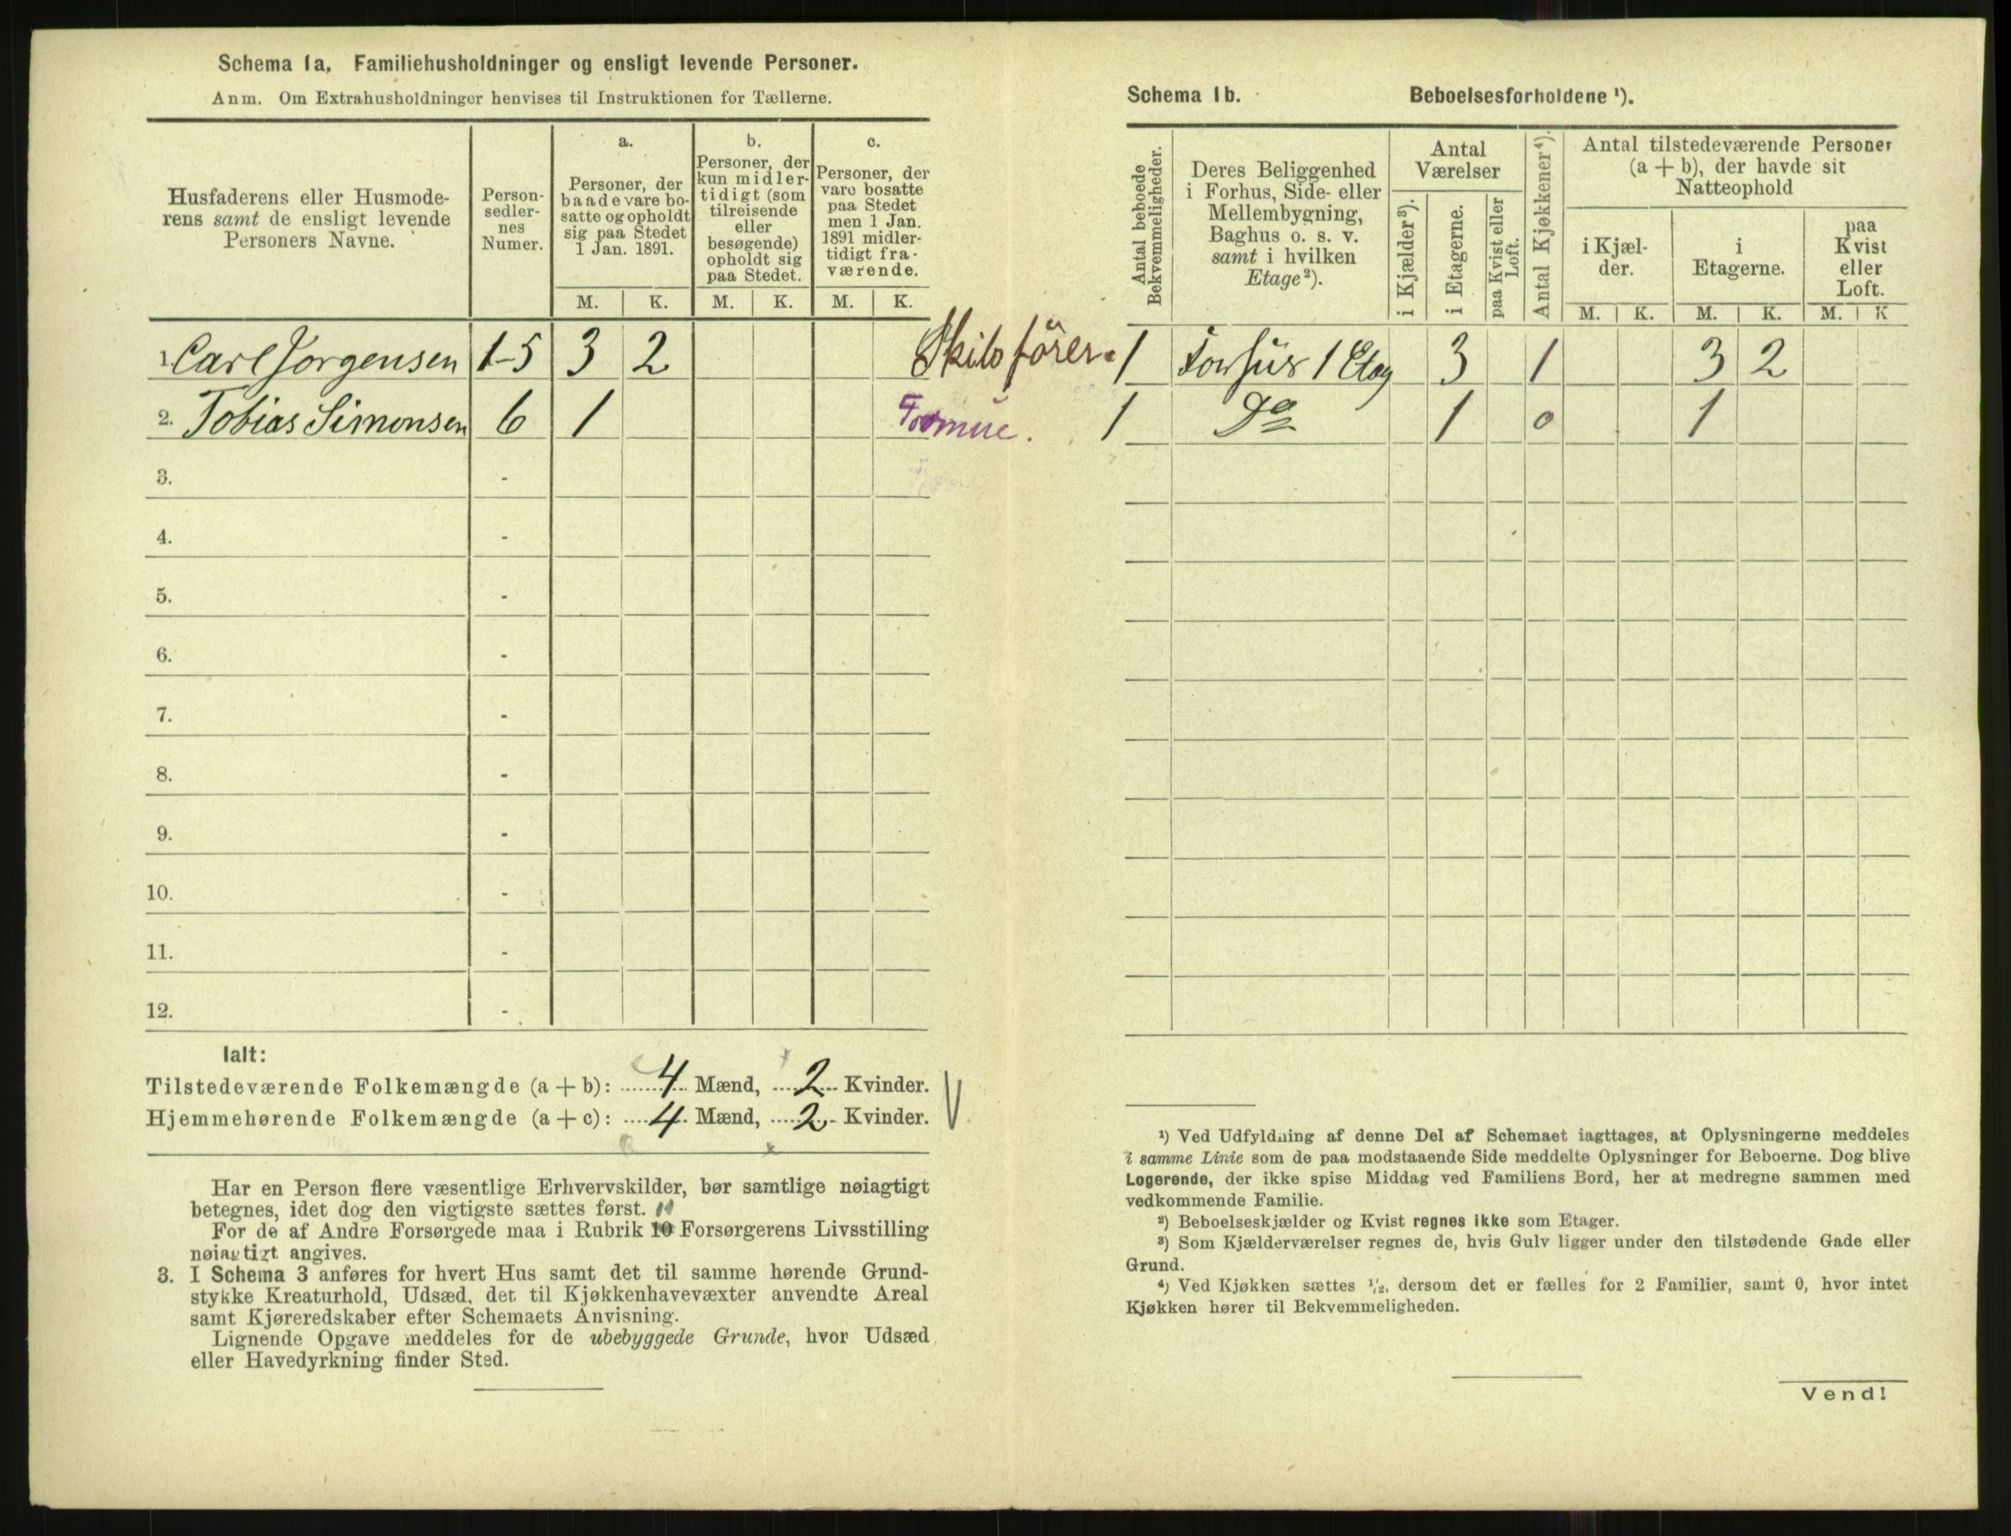 Schema 1a, Familiehusholdninger og ensligt levende Personer.
Anm. Om Extrahusholdninger henvises til Instruktionen for Tællerne.
Husfaderens eller Husmode-
rens samt de ensligt levende
Personers Navne.
Person-
sedler-
nes
Numer.
a.
Personer, der
baade vare bo-
satte og opholdt
sig paa Stedet
1 Jan. 1891.
b.
Personer, der
kun midler-
tidigt (som
tilreisende
eller
besøgende)
opholdt sig
paa Stedet.
c.
Personer, der
vare bosatte
paa Stedet
men 1 Jan.
1891 midler-
tidigt fra-
værende.
M. K. M. K. M. K.
1. Carl Jørgensen 1-5 3 2 Skibsförer.
2. Tobias Simonsen 6 1 Formue.
3. -
4. -
5. -
6. -
7. -
8. -
9. -
10. -
11. -
12. -
Ialt:
Tilstedeværende Folkemængde (a + b): 4 Mænd, 2 Kvinder.
Hjemmehørende Folkemængde (a + c): 4 Mænd, 2 Kvinder.
Har en Person flere væsentlige Erhvervskilder, bør samtlige nøiagtigt
betegnes, idet dog den vigtigste sættes først. 11
For de af Andre Forsørgede maa i Rubrik 10 Forsørgerens Livsstilling
nøiagtigt angives.
3. I Schema 3 anføres for hvert Hus samt det til samme hørende Grund-
stykke Kreaturhold, Udsæd, det til Kjøkkenhavevæxter anvendte Areal
samt Kjøreredskaber efter Schemaets Anvisning.
Lignende Opgave meddeles for de ubebyggede Grunde, hvor Udsæd
eller Havedyrkning finder Sted.
Schema 1b. Beboelsesforholdene ¹).
Antal beboede
Bekvemmeligheder.
Deres Beliggenhed
i Forhus, Side- eller
Mellembygning,
Baghus o. s. v.
samt i hvilken
Etage²).
Antal
Værelser
i Kjælder³).
i Etagerne.
paa Kvist eller
Loft.
Antal Kjøkkener⁴).
Antal tilstedeværende Personer
(a + b), der havde sit
Natteophold
i Kjæl-
der.
i
Etagerne.
paa
Kvist
eller
Loft.
M. K. M. K. M. K
1 Forhus 1 Etag 3 1 3 2
1 Do 1 0 1
¹) Ved Udfyldning af denne Del af Schemaet iagttages, at Oplysningerne meddeles
i samme Linie som de paa modstaaende Side meddelte Oplysninger for Beboerne. Dog blive
Logerende, der ikke spise Middag ved Familiens Bord, her at medregne sammen med
vedkommende Familie.
²) Beboelseskjælder og Kvist regnes ikke som Etager.
³) Som Kjælderværelser regnes de, hvis Gulv ligger under den tilstødende Gade eller
Grund.
⁴) Ved Kjøkken sættes ½, dersom det er fælles for 2 Familier, samt 0, hvor intet
Kjøkken hører til Bekvemmeligheden.
Vend!